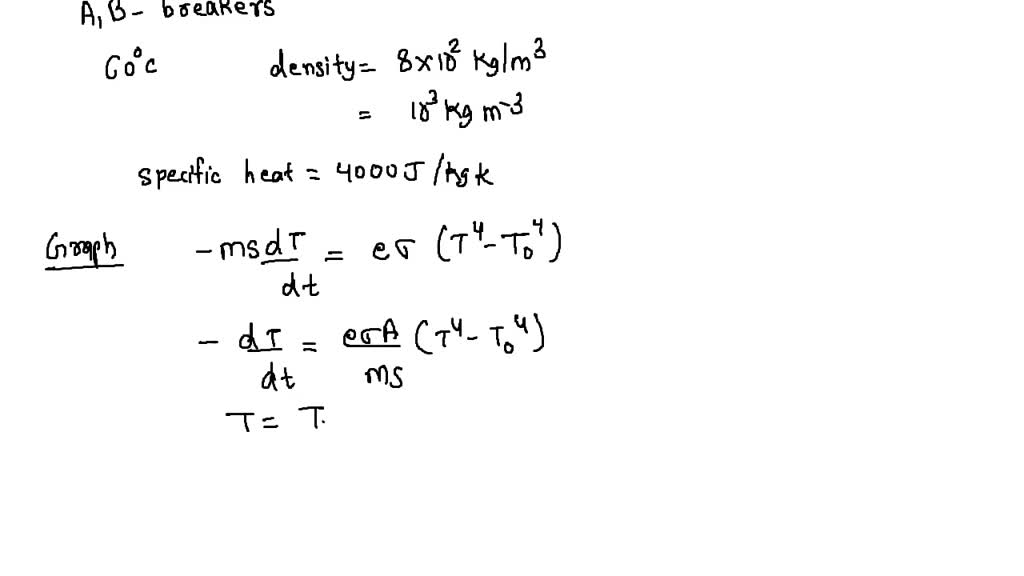 A, B - breakers
60°C density = 8×10² kg/m³
= 10³ kg m⁻³
specific heat = 4000J/kgk
Graph - ms dT/dt = eσ (T⁴ - T₀⁴)
- dT/dt = eσA/ms (T⁴ - T₀⁴)
T = T.